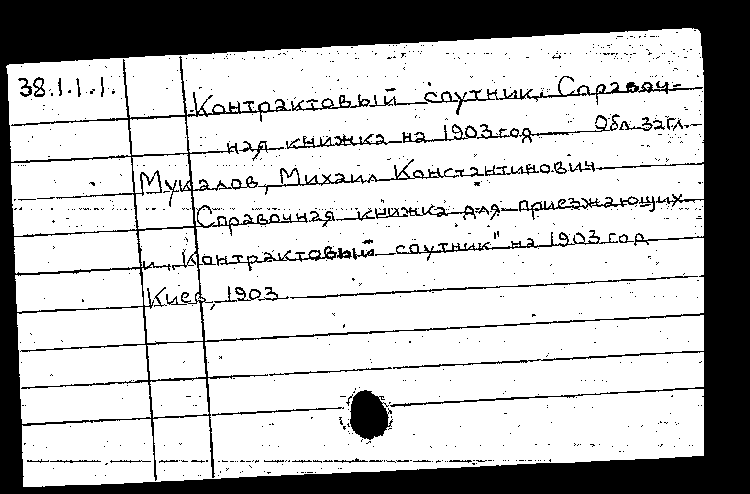 38.1.1.1.
Контрактовый спутник. Справоч-
ная книжка на 1903 год Обл. загл.
Мукалов, Михаил Константинович
Справочная книжка для приезжающих
и „Контрактовый спутник" на 1903 год
Киев, 1903